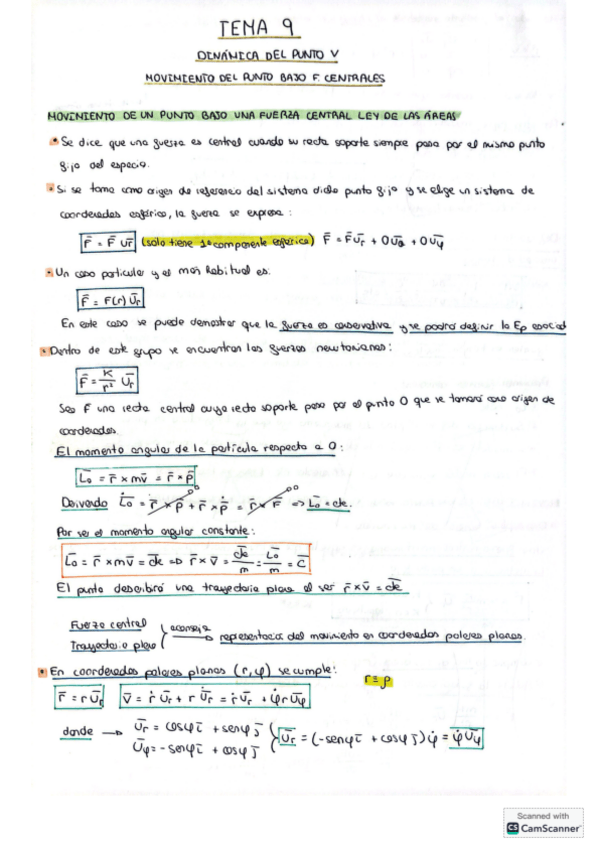 TEMA 9
DINÁMICA DEL PUNTO V
MOVIMIENTO DEL PUNTO BAJO F. CENTRALES
MOVIMIENTO DE UN PUNTO BAJO UNA FUERZA CENTRAL LEY DE LAS ÁREAS
• Se dice que una fuerza es central cuando su recta soporte siempre pasa por el mismo punto
fijo del espacio.
• Si se toma como origen de referencia del sistema dicho punto fijo y se elige un sistema de
coordenadas esférico, la fuerza se expresa:
F̄ = F̄ ūr (solo tiene 1ª componente esférica) F̄ = F̄ūr + 0ūθ + 0ūφ
• Un caso particular y el más habitual es:
F̄ = F(r) ūr
En este caso se puede demostrar que la fuerza es conservativa y se podrá definir la Ep asociad
• Dentro de este grupo se encuentran las fuerzas newtonianas:
F̄ = K/r² ūr
Sea F una recta central cuya recta soporte pasa por el punto O que se tomará como origen de
coordenadas.
El momento angular de la partícula respecto a O:
L̄o = r̄ × mv̄ = r̄ × p̄
Derivando L̄̇o = r̄̇ × p̄ + r̄ × p̄̇ = r̄ × F̄ => L̄o = cte.
Por ser el momento angular constante:
L̄o = r̄ × mv̄ = cte => r̄ × v̄ = cte/m = L̄o/m = C̄
El punto describirá una trayectoria plana al ser r̄ × v̄ = cte
Fuerza central
Trayectoria plana } aconseja → representación del movimiento en coordenadas polares planas.
• En coordenadas polares planas (r, φ) se cumple: r = ρ
r̄ = r ūr v̄ = ṙ ūr + r ū̇r = ṙ ūr + φ̇ r ūφ
donde → ūr = cosφ ī + senφ j̄
ūφ = - senφ ī + cosφ j̄ } ū̇r = (-senφ ī + cosφ j̄) φ̇ = φ̇ ūφ
Scanned with
CS CamScanner